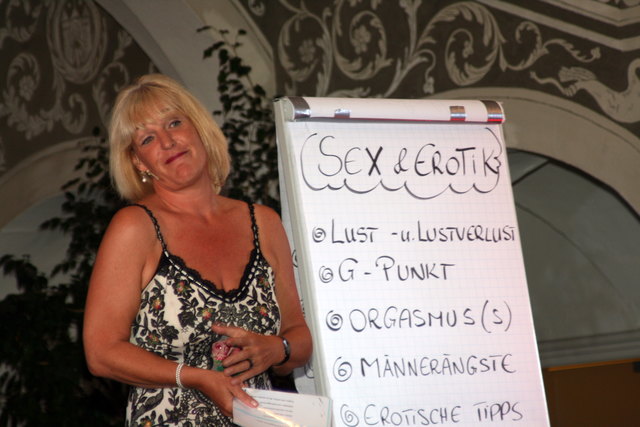 SEX & EROTIK
LUST - u. LUSTVERLUST
G - PUNKT
ORGASMUS(S)
MÄNNERÄNGSTE
EROTISCHE TIPPS